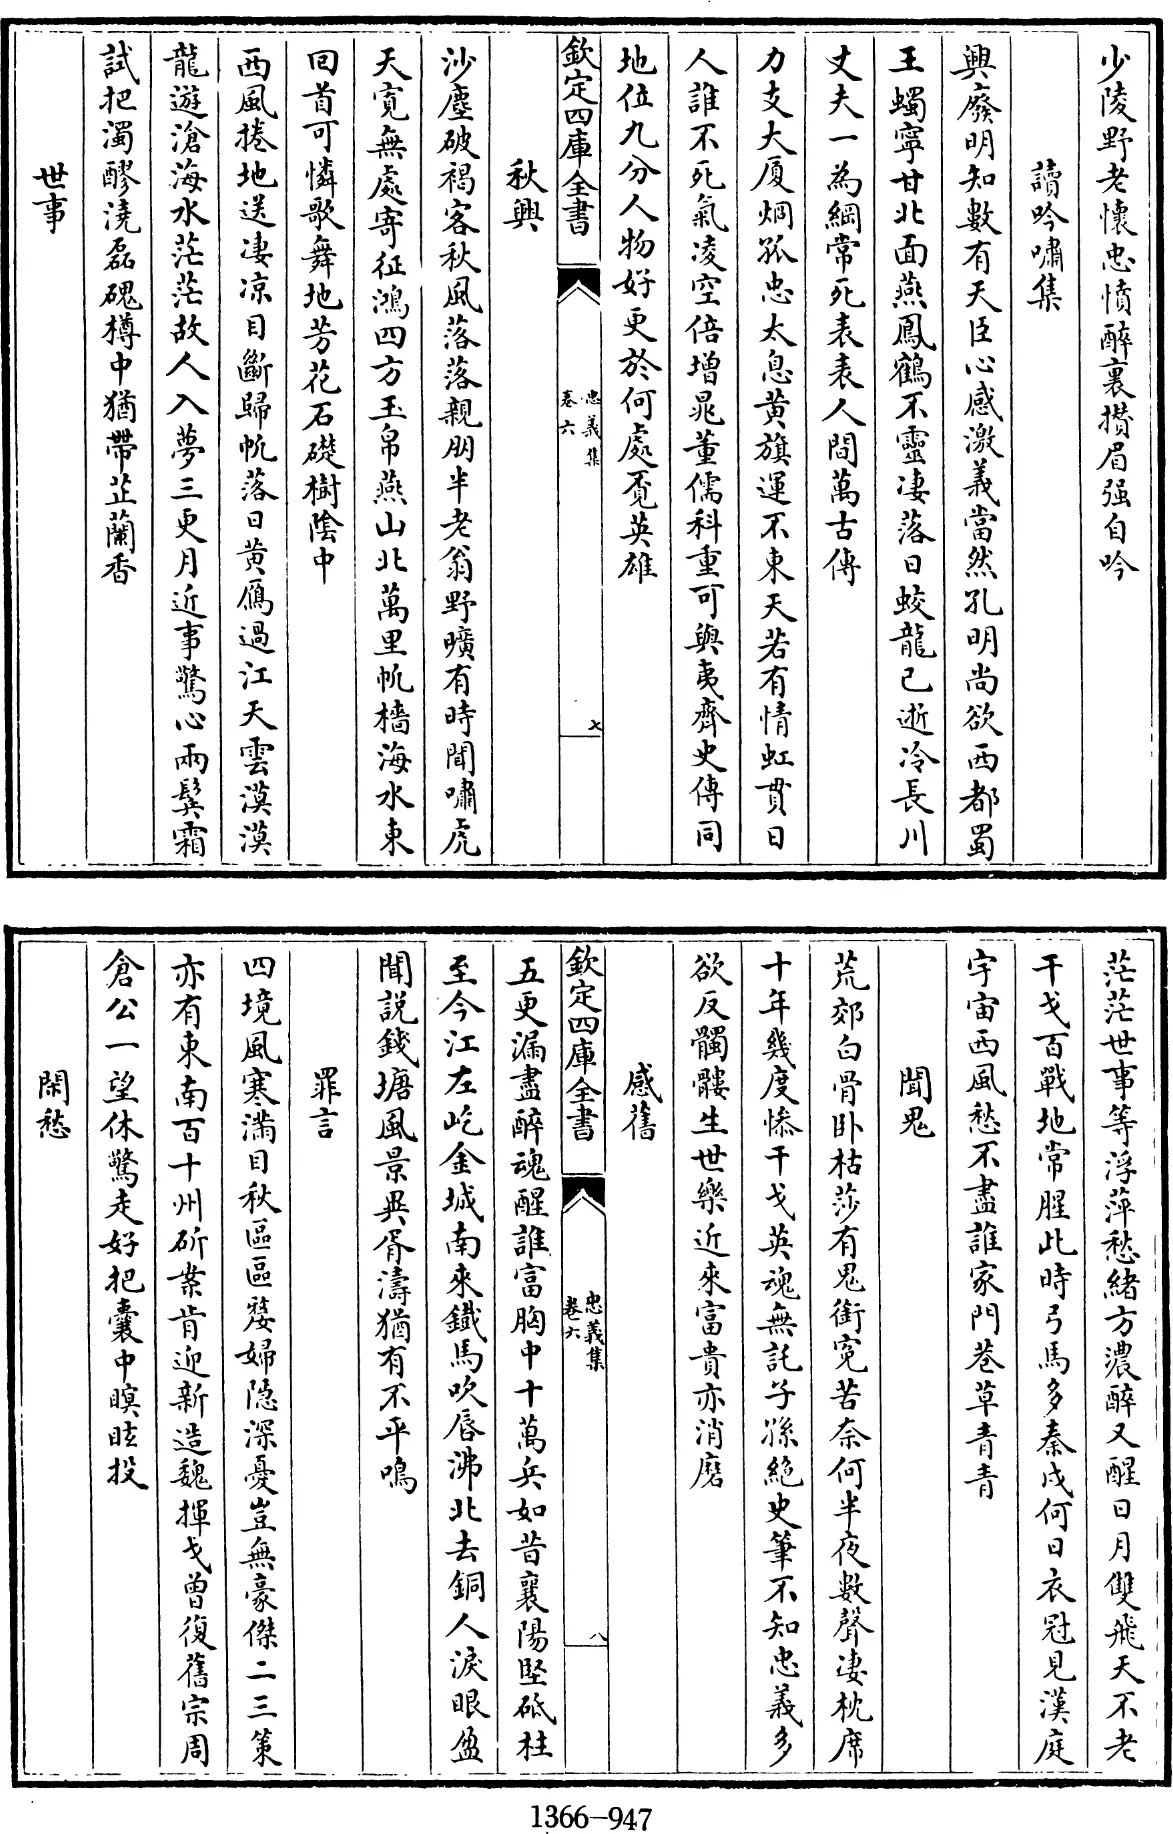 少陵野老懷忠憤醉裏攅眉强自吟
讀吟嘯集
興廢明知數有天臣心感激義當然孔明尚欲西都蜀
王蠋寧甘北面燕鳳鶴不靈凄落日蛟龍已逝冷長川
丈夫一為綱常死表表人間萬古傳
力支大厦炯孤忠太息黄旗運不東天若有情虹貫日
人誰不死氣凌空倍增鼂董儒科重可與夷齊史傳同
地位九分人物好更於何處覔英雄
欽定四庫全書
忠義集
卷六
七
秋興
沙塵破褐客秋風落落親朋半老翁野曠有時聞嘯虎
天寛無處寄征鴻四方玉帛燕山北萬里帆檣海水東
回首可憐歌舞地芳花石礎樹陰中
西風捲地送凄凉目斷歸帆落日黄鴈過江天雲漠漠
龍遊滄海水茫茫故人入夢三更月近事驚心兩鬂霜
試把濁醪澆磊磈樽中猶帶芷蘭香
世事
茫茫世事等浮萍愁緒方濃醉又醒日月雙飛天不老
干戈百戰地常腥此時弓馬多秦戍何日衣冠見漢庭
宇宙西風愁不盡誰家門巷草青青
聞鬼
荒郊白骨卧枯莎有鬼銜寃苦奈何半夜數聲凄枕席
十年幾度慘干戈英魂無託子孫絶史筆不知忠義多
欲反髑髏生世樂近來富貴亦消磨
感舊
欽定四庫全書
忠義集
卷六
八
五更漏盡醉魂醒誰富胸中十萬兵如昔襄陽堅砥柱
至今江左屹金城南來鐵馬吹唇沸北去銅人淚眼盈
聞説錢塘風景異胥濤猶有不平鳴
罪言
四境風寒滿目秋區區嫠婦隠深憂豈無豪傑二三策
亦有東南百十州斫案肯迎新造魏揮戈曾復舊宗周
倉公一望休驚走好把囊中瞑眩投
閑愁
1366-947